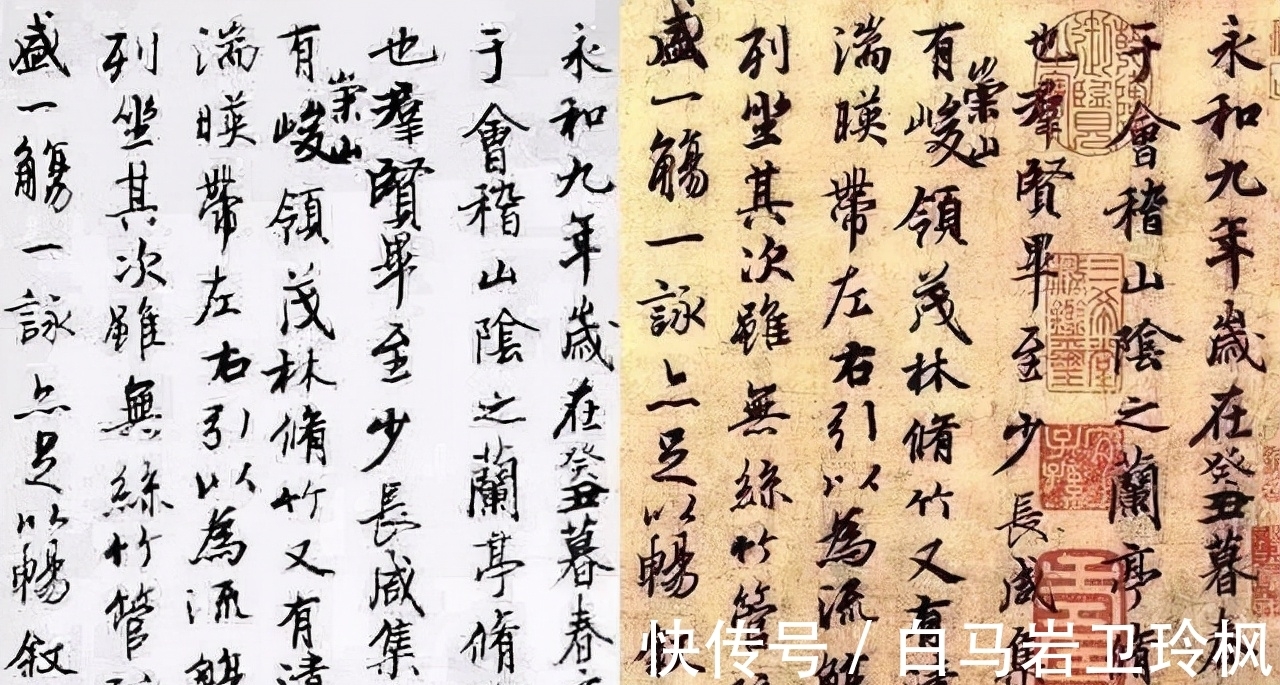 永和九年歲在癸丑暮春
于會稽山陰之蘭亭脩
也羣賢畢至少長咸集
有崇山峻領茂林脩竹又有清
湍暎帶左右引以為流觴
列坐其次雖無絲竹管
盛一觴一詠亦足以暢敘
永和九年歲在癸丑暮春
于會稽山陰之蘭亭脩
也羣賢畢至少長咸集
有崇山峻領茂林脩竹又有清
湍暎帶左右引以為流觴
列坐其次雖無絲竹管
盛一觴一詠亦足以暢敘
快传号 / 白马岩卫玲枫